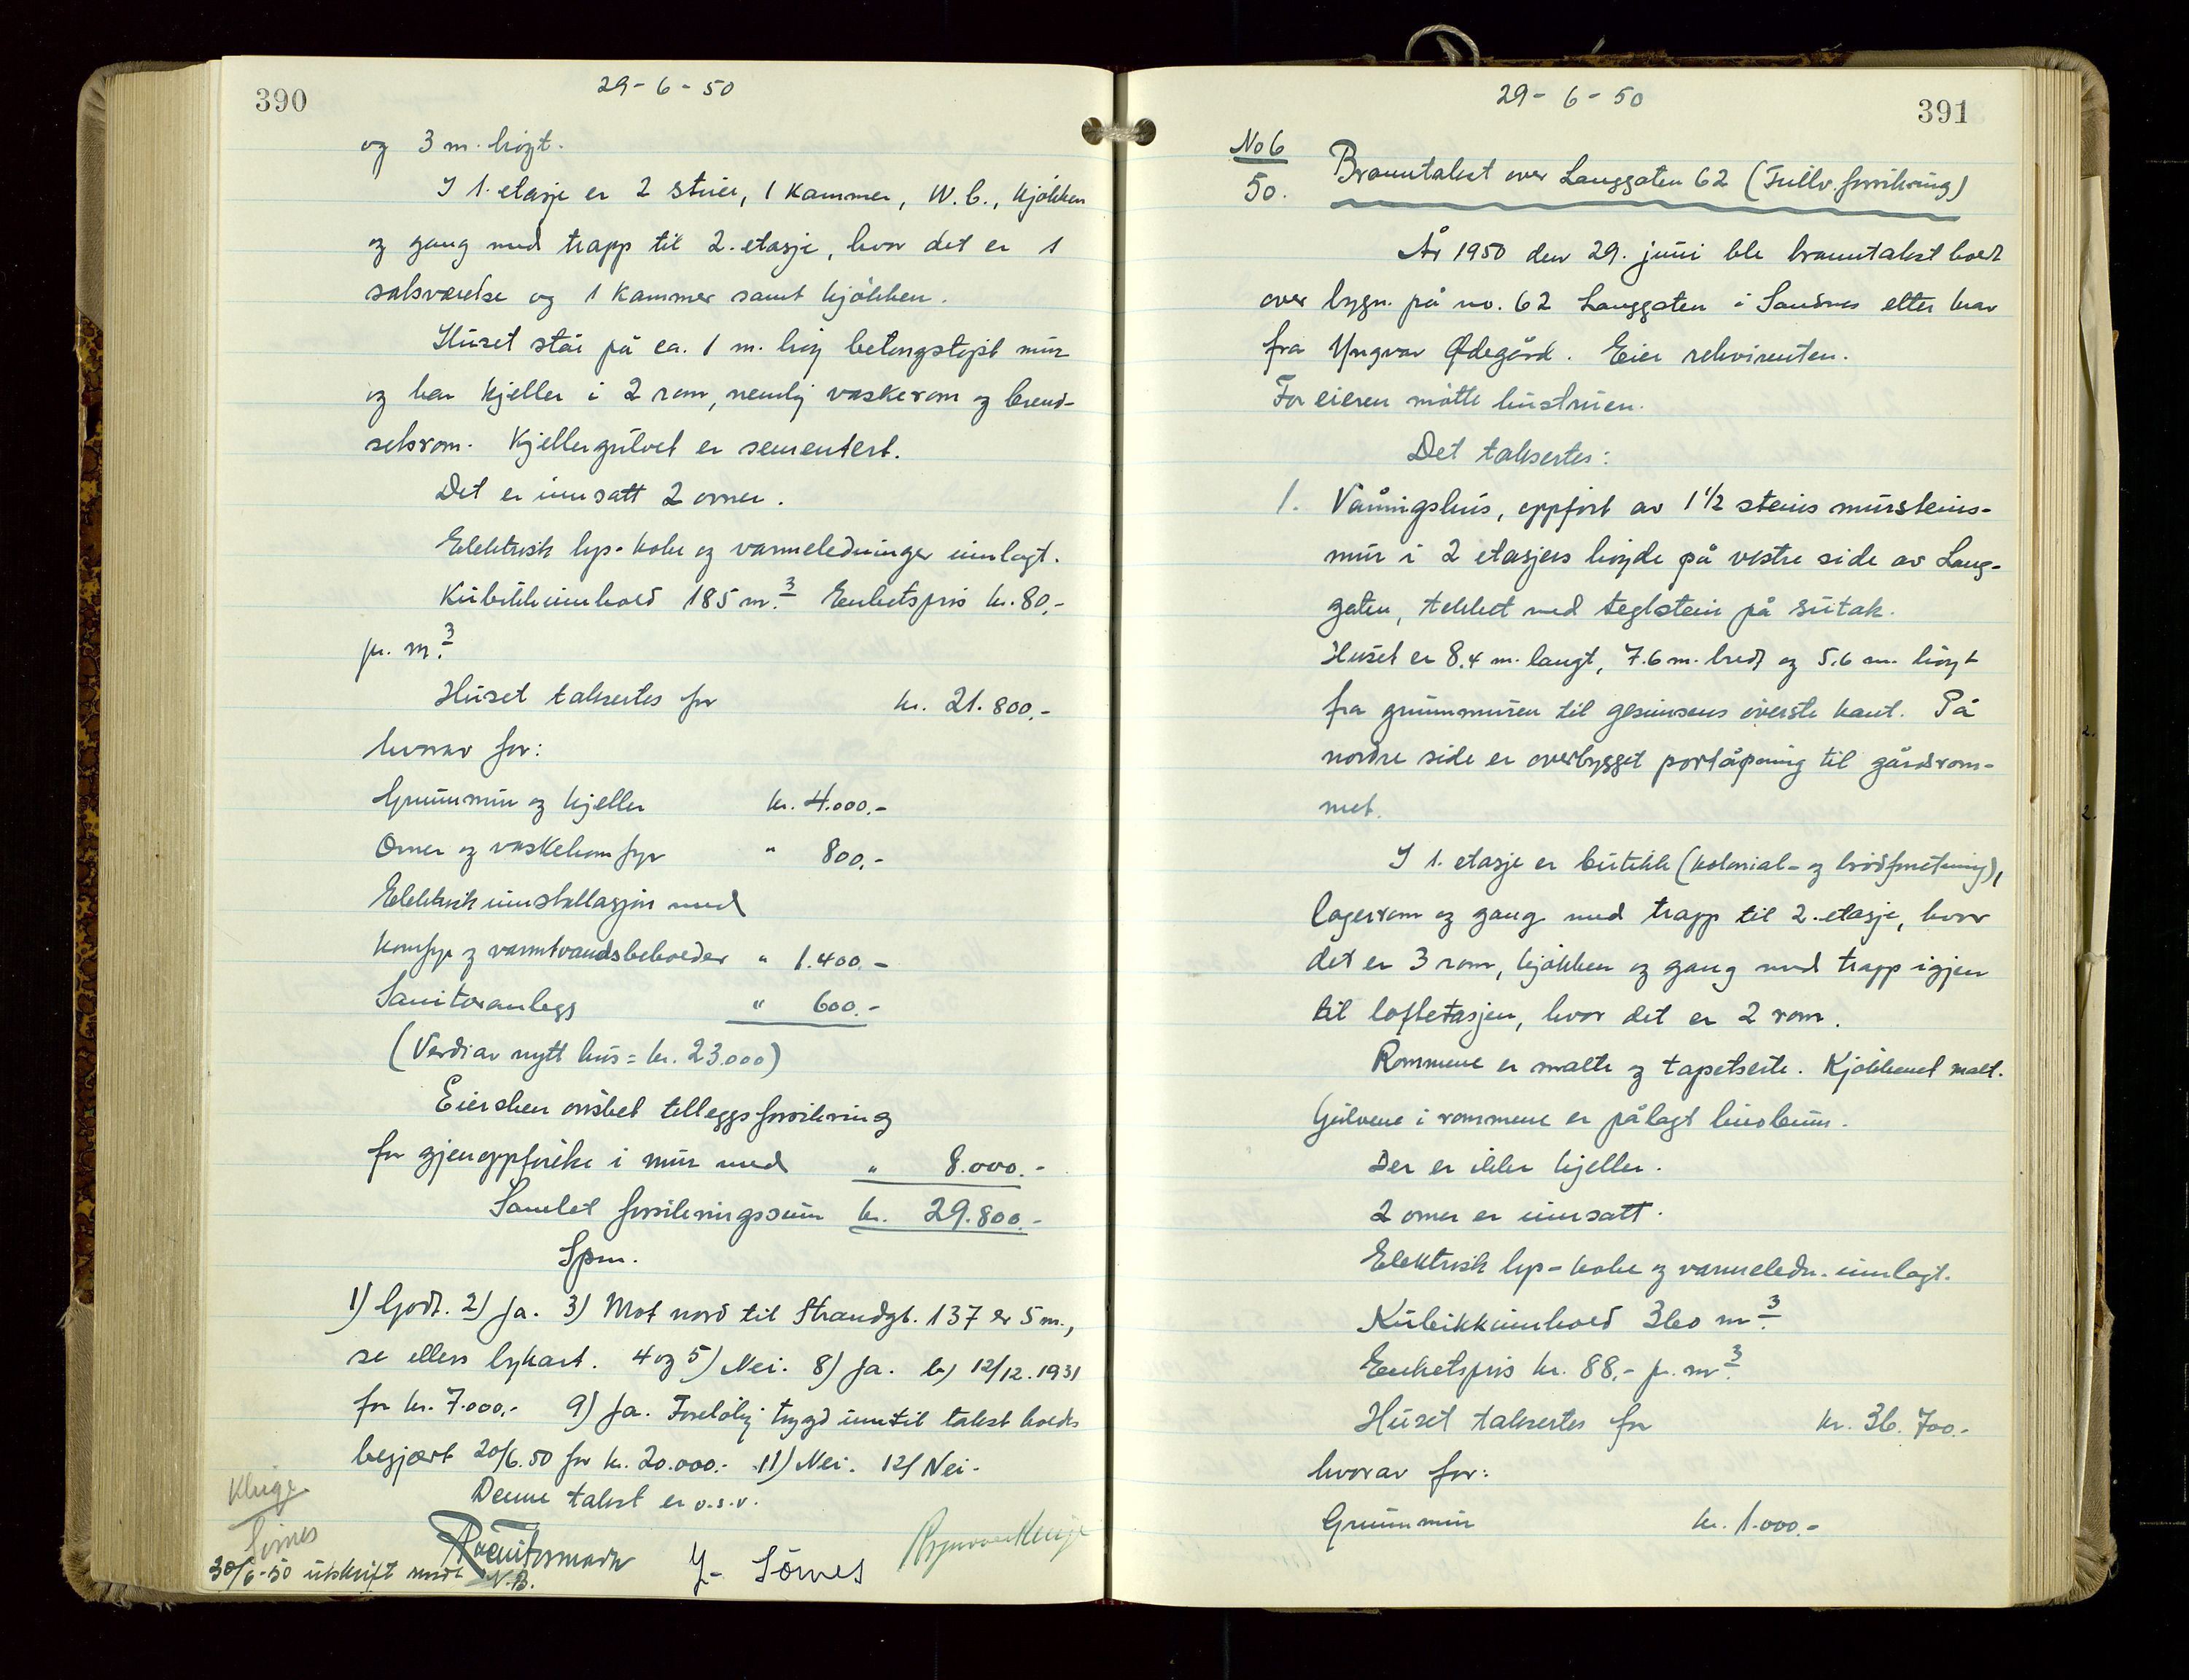 390
29-6-50
og 3 m. høgt.
I 1. etasje er 2 stuer, 1 kammer, W.C., kjøkken
og gang med trapp til 2. etasje, hvor det er 1
soveværelse og 1 kammer samt kjøkken.
Huset står på ca. 1 m. høy betongstøpt mur
og har kjeller i 2 rom, nemlig vaskerom og brend-
selsrom. Kjellergulvet er sementert.
Det er innsatt 2 ovner.
Elektrisk lys- koke og varmeledninger innlagt.
Kubikkinnhold 185 m.3 Enhetspris kr. 80,-
pr. m.3
Huset takseres for kr. 21.800,-
hvorav for:
Grunnmur og kjeller kr. 4.000.-
Ovner og vaskekomfyr " 800,-
Elektrisk innstallasjon med
komfyr og varmtvandsbeholder " 1.400.-
Sanitæranlegg " 600.-
(Verdi av nytt hus = kr. 23.000)
Eieren ønsket tilleggsforsikring
for gjenoppførelse i mur med " 8.000.-
Samlet forsikringssum kr. 29.800.-
Spm.
1) Godt. 2) Ja. 3) Mot nord til Strandgt. 137 er 5 m.,
se ellers bykart. 4 og 5) Nei. 8) Ja. b) 12/12.1931
for kr. 7.000,- 9) Ja. Foreløbig trygd inntil takst holdes
begjært 20/6.50 for kr. 20.000.- 11) Nei. 12) Nei.
Denne takst er o.s.v.
Kluge
Sørnes
30/6-50 utskrift sendt N.B.
J. Sörnes
391
29-6-50
No 6
50.
Branntakst over Langgaten 62 (Fullv. forsikring)
År 1950 den 29. juni ble branntakst holdt
over bygn. på no. 62 Langgaten i Sandnes etter krav
fra Yngvar Ødegård. Eier rekvirenten.
For eieren møtte hustruen.
Det taksertes:
1. Våningshus, oppført av 1 1/2 steins mursteins-
mur i 2 etasjers høyde på vestre side av Lang-
gaten, tekket med teglstein på sutak.
Huset er 8.4 m. langt, 7.6 m. bredt og 5.6 m. høyt
fra grunnmuren til gesimsens øverste kant. På
nordre side er overbygget portåpning til gårdsrom-
met.
I 1. etasje er butikk (kolonial- og brødforretning),
lagerrom og gang med trapp til 2. etasje, hvor
det er 3 rom, kjøkken og gang med trapp igjen
til loftetasjen, hvor det er 2 rom.
Rommene er malte og tapetserte. Kjøkkenet malt.
Gulvene i rommene er pålagt linoleum.
Der er ikke kjeller.
2 ovner er innsatt.
Elektrisk lys- koke og varmeledn. innlagt.
Kubikkinnhold 360 m.3
Enhetspris kr. 88,- p. m.3
Huset taksertes for kr. 36.700.-
hvorav for:
Grunnmur kr. 1.000.-